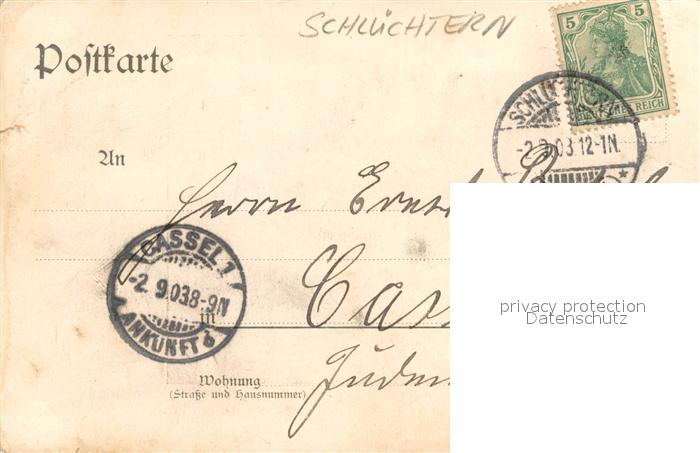 SCHLÜCHTERN
Postkarte
5 5
DEUTSCHES REICH
SCHLÜCHTERN
-2.9.03.12-1N.
An
Herrn Ernst
CASSEL 1
-2. 9.03.8-9N
ANKUNFT
in Cas
privacy protection
Datenschutz
Wohnung
(Straße und Hausnummer)
Juden